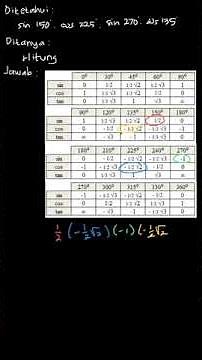 Diketahui :
sin 150° . cos 225° . sin 270° . cos 135°
Ditanya :
Hitung
Jawab :
0° 30° 45° 60° 90°
sin 0 1/2 1/2 √2 1/2 √3 1
cos 1 1/2 √3 1/2 √2 1/2 0
tan 0 1/3 √3 1 √3 ∞
90° 120° 135° 150° 180°
sin 1 1/2 √3 1/2 √2 1/2 0
cos 0 - 1/2 - 1/2 √2 - 1/2 √3 -1
tan ∞ - √3 -1 - 1/3 √3 0
180° 210° 225° 240° 270°
sin 0 - 1/2 - 1/2 √2 - 1/2 √3 -1
cos -1 - 1/2 √3 - 1/2 √2 - 1/2 0
tan 0 1/3 √3 1 √3 ∞
270° 300° 315° 330° 360°
sin -1 - 1/2 √3 - 1/2 √2 - 1/2 0
cos 0 1/2 1/2 √2 1/2 √3 1
tan ∞ - √3 -1 - 1/3 √3 0
1/2 (-1/2 √2) (-1) (-1/2 √2